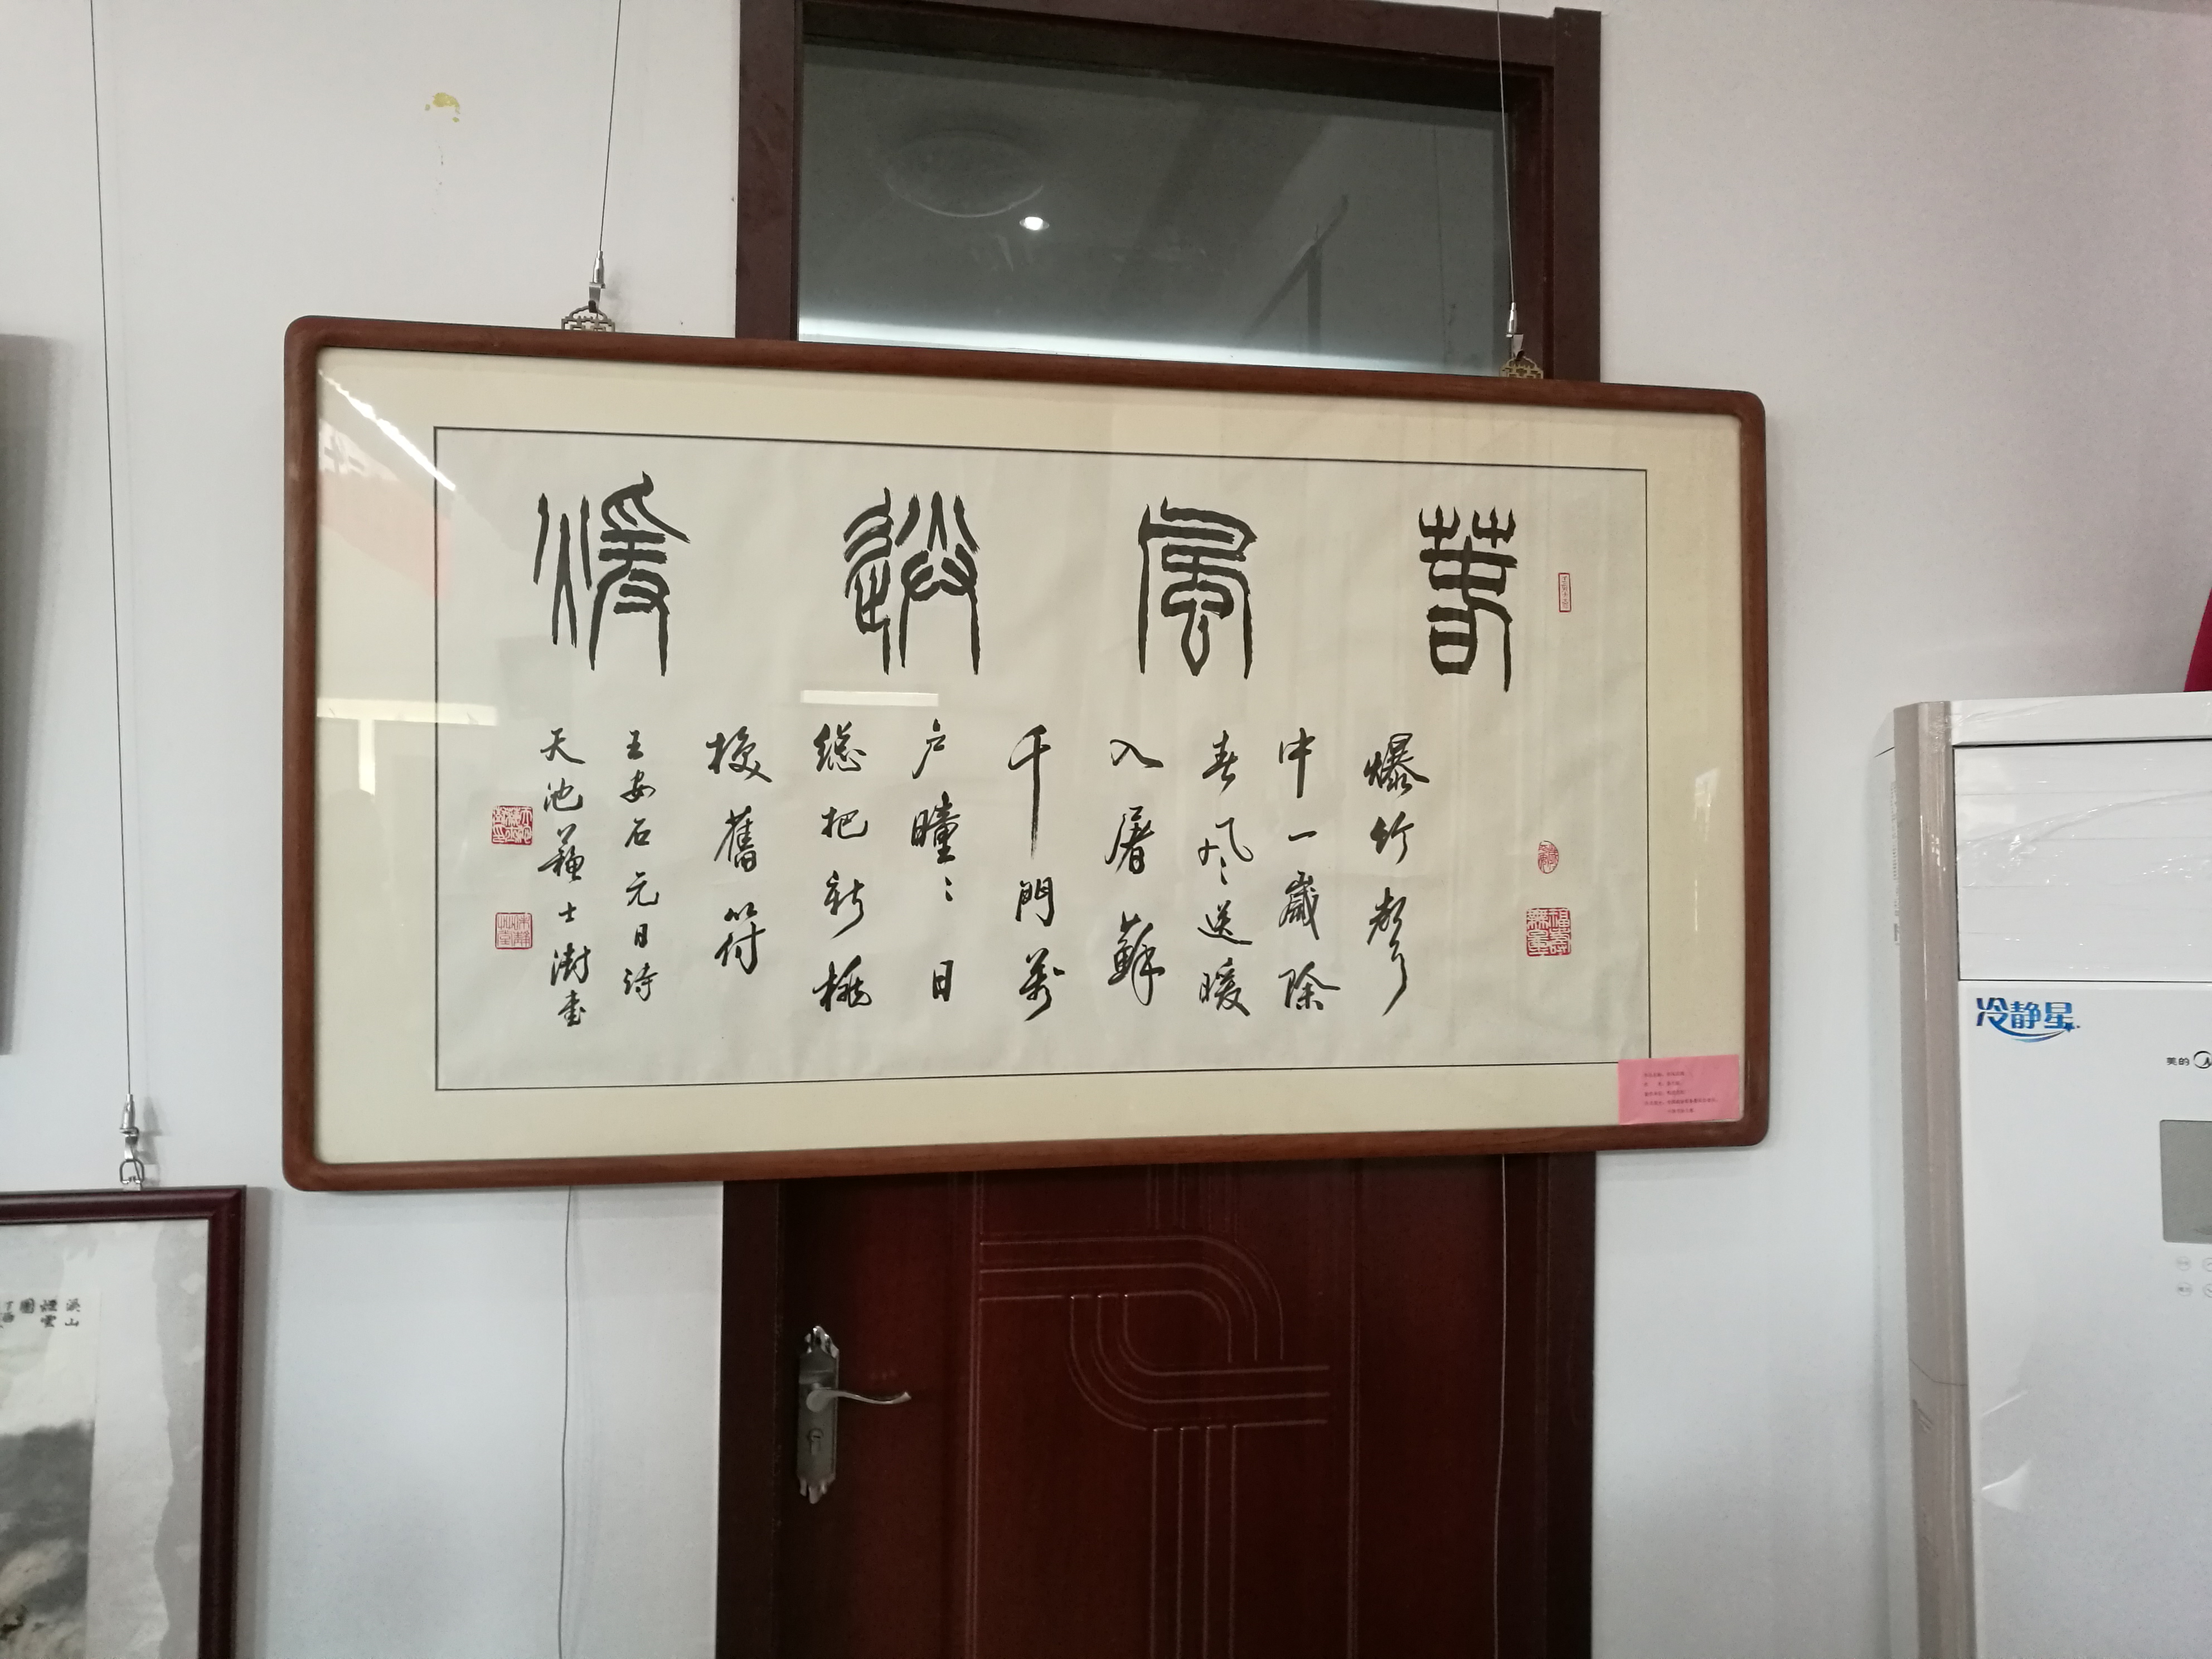 春風送煖
爆竹聲
中一歲除
春风送暖
入屠蘇
千門萬
户曈〻日
總把新桃
換舊符
王安石元日诗
天池蘇士澍書
冷静星
美的
溪山
煙雲
圖